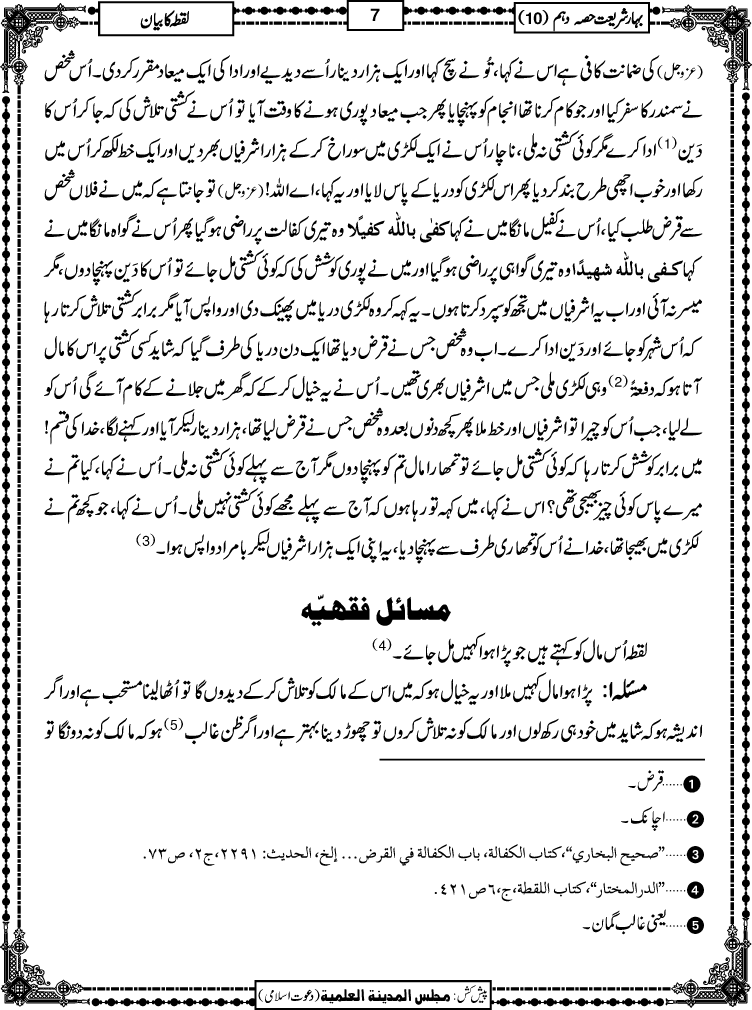 بہارِ شریعت حصہ دہم (10)
7
لقطہ کا بیان
(عزوجل) کی ضمانت کافی ہے اس نے کہا، تُو نے سچ کہا اور ایک ہزار دینار اُسے دیدیے اور ادا کی ایک میعاد مقرر کردی۔ اُس شخص
نے سمندر کا سفر کیا اور جو کام کرنا تھا انجام کو پہنچایا پھر جب میعاد پوری ہونے کا وقت آیا تو اُس نے کشتی تلاش کی کہ جا کر اُس کا
دَین(1) ادا کرے مگر کوئی کشتی نہ ملی، ناچار اُس نے ایک لکڑی میں سوراخ کر کے ہزار اشرفیاں بھر دیں اور ایک خط لکھ کر اُس میں
رکھا اور خوب اچھی طرح بند کر دیا پھر اس لکڑی کو دریا کے پاس لایا اور یہ کہا، اے اللہ! (عزوجل) تو جانتا ہے کہ میں نے فلاں شخص
سے قرض طلب کیا، اُس نے کفیل مانگا میں نے کہا کفیٰ باللّٰہ کفیلًا وہ تیری کفالت پر راضی ہو گیا پھر اُس نے گواہ مانگا میں نے
کہا کـفـی باللّٰہ شھیدًا وہ تیری گواہی پر راضی ہو گیا اور میں نے پوری کوشش کی کہ کوئی کشتی مل جائے تو اُس کا دَین پہنچا دوں، مگر
میسر نہ آئی اور اب یہ اشرفیاں میں تجھ کو سپرد کرتا ہوں۔ یہ کہہ کر وہ لکڑی دریا میں پھینک دی اور واپس آیا مگر برابر کشتی تلاش کرتا رہا
کہ اُس شہر کو جائے اور دَین ادا کرے۔ اب وہ شخص جس نے قرض دیا تھا ایک دن دریا کی طرف گیا کہ شاید کسی کشتی پر اس کا مال
آتا ہو کہ دفعۃً(2) وہی لکڑی ملی جس میں اشرفیاں بھری تھیں۔ اُس نے یہ خیال کر کے کہ گھر میں جلانے کے کام آئے گی اُس کو
لے لیا، جب اُس کو چیرا تو اشرفیاں اور خط ملا پھر کچھ دنوں بعد وہ شخص جس نے قرض لیا تھا، ہزار دینار لیکر آیا اور کہنے لگا، خدا کی قسم!
میں برابر کوشش کرتا رہا کہ کوئی کشتی مل جائے تو تمھارا مال تم کو پہنچا دوں مگر آج سے پہلے کوئی کشتی نہ ملی۔ اُس نے کہا، کیا تم نے
میرے پاس کوئی چیز بھیجی تھی؟ اس نے کہا، میں کہہ تو رہا ہوں کہ آج سے پہلے مجھے کوئی کشتی نہیں ملی۔ اُس نے کہا، جو کچھ تم نے
لکڑی میں بھیجا تھا، خدا نے اُس کو تمھاری طرف سے پہنچا دیا، یہ اپنی ایک ہزار اشرفیاں لیکر بامراد واپس ہوا۔(3)
مسائل فقھیّہ
لقطہ اُس مال کو کہتے ہیں جو پڑا ہوا کہیں مل جائے۔(4)
مسئلہ ۱: پڑا ہوا مال کہیں ملا اور یہ خیال ہو کہ میں اس کے مالک کو تلاش کر کے دیدوں گا تو اُٹھا لینا مستحب ہے اور اگر
اندیشہ ہو کہ شاید میں خود ہی رکھ لوں اور مالک کو نہ تلاش کروں تو چھوڑ دینا بہتر ہے اور اگر ظن غالب(5) ہو کہ مالک کو نہ دونگا تو
1......قرض۔
2......اچانک۔
3......”صحیح البخاري“، کتاب الکفالة، باب الکفالة في القرض... إلخ، الحدیث: ٢٢٩١، ج٢، ص٧٣.
4......”الدرالمختار“، کتاب اللقطة، ج،٦ص٤٢١.
5......یعنی غالب گمان۔
پیش کش: مجلس المدینة العلمیة (دعوت اسلامی)